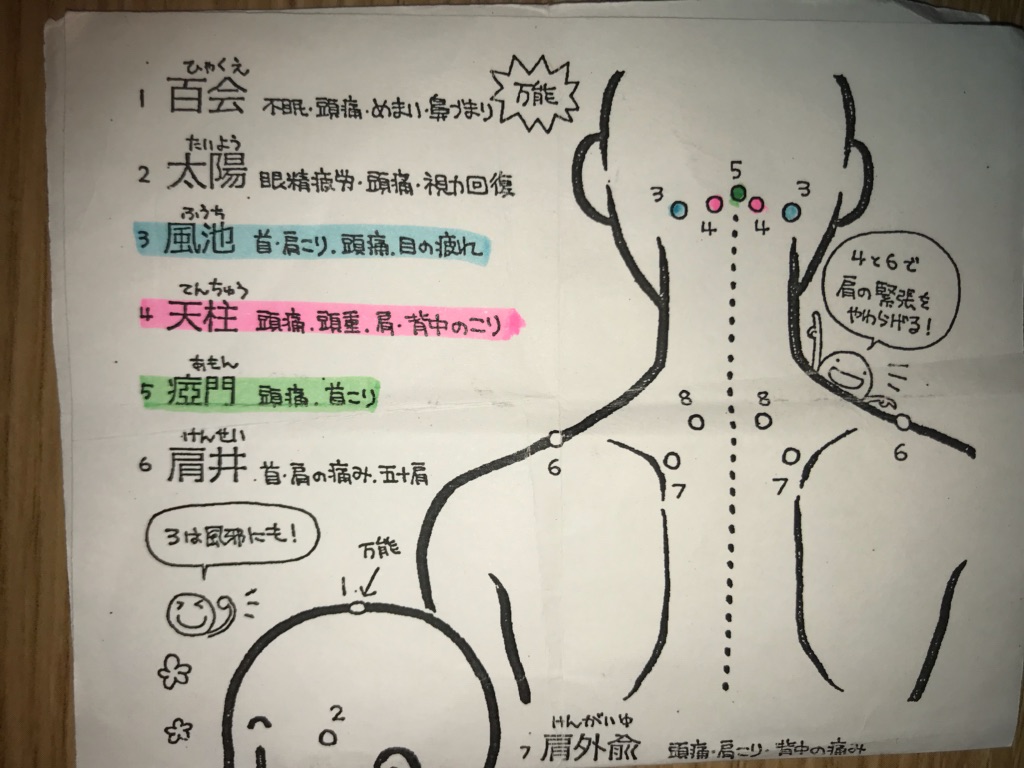 ひゃくえ
1 百会 不眠・頭痛・めまい・鼻づまり
万能
たいよう
2 太陽 眼精疲労・頭痛・視力回復
ふうち
3 風池 首・肩こり.頭痛.目の疲れ
てんちゅう
4 天柱 頭痛.頭重.肩・背中のこり
あもん
5 瘂門 頭痛.首こり
けんせい
6 肩井 首・肩の痛み.五十肩
3は風邪にも!
万能
1
2
5
3
3
4
4
4と6で
肩の緊張を
やわらげる!
8
8
6
6
7
7
けんがいゆ
7 肩外兪 頭痛・肩こり・背中の痛み